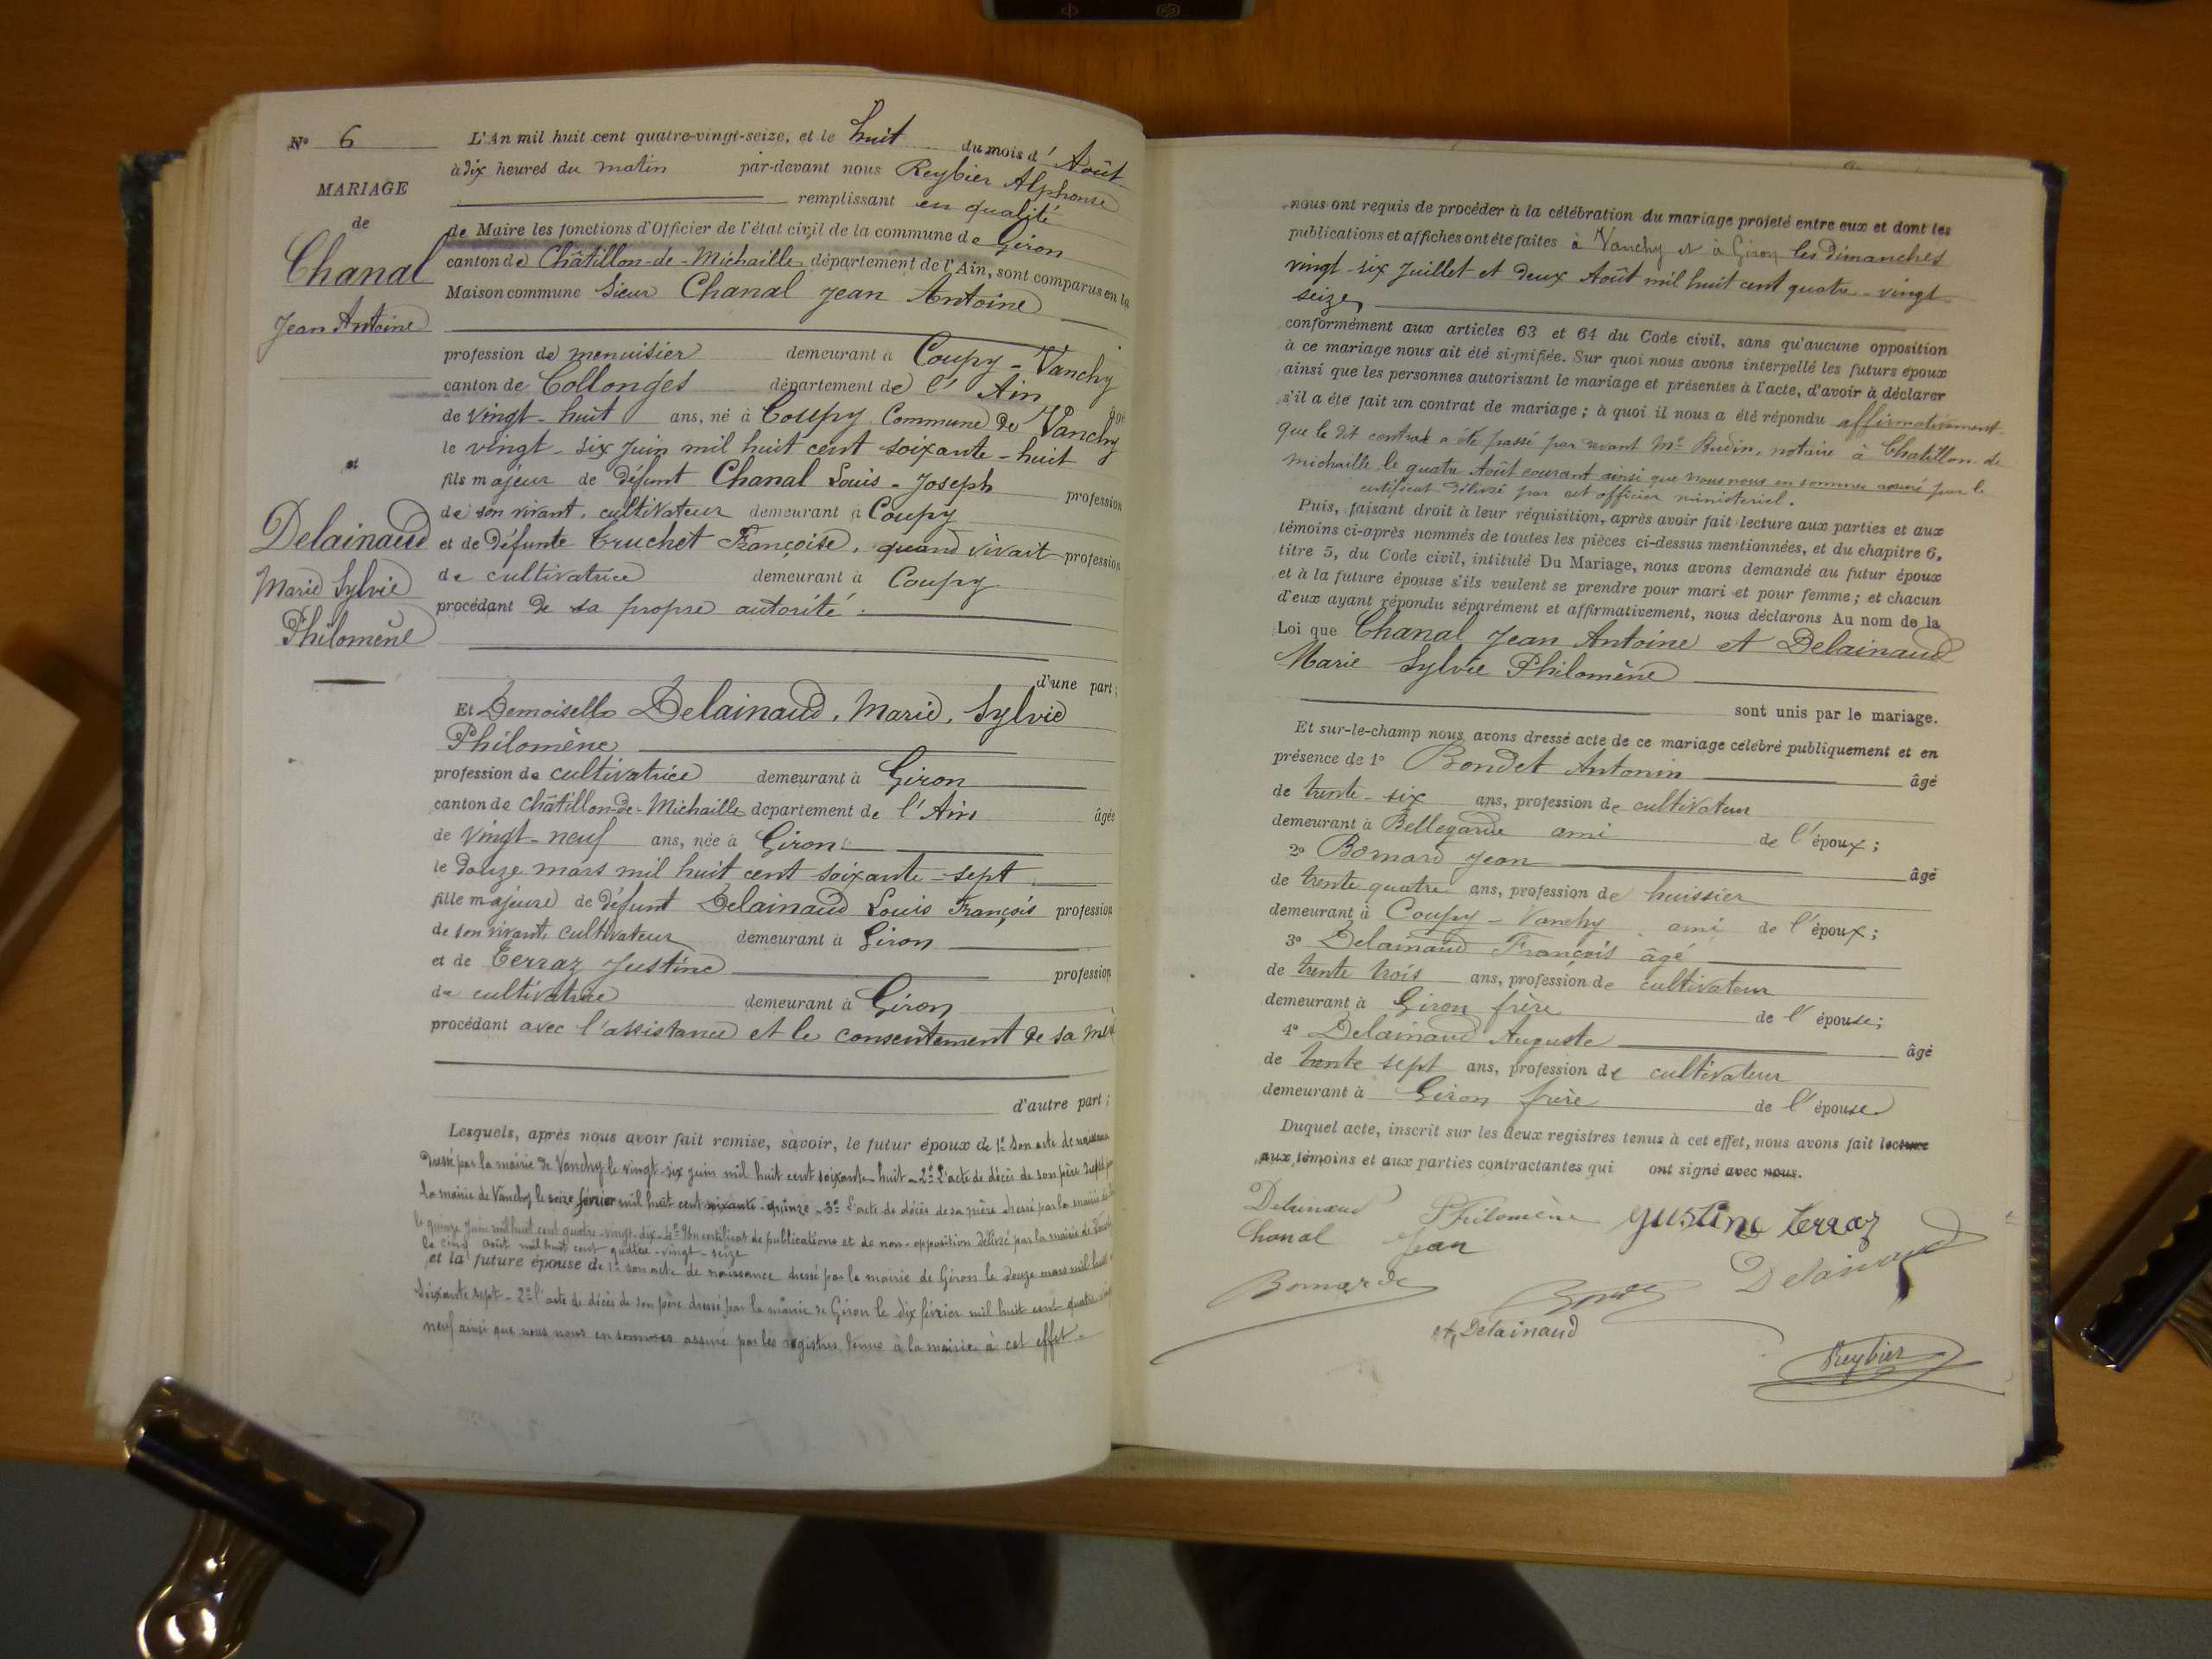 N° 6
MARIAGE
de
Chanal
Jean Antoine
et
Delainaud
Marie Sylvie
Philomène
L'An mil huit cent quatre-vingt-seize, et le huit du mois d'Août
à dix heures du matin par-devant nous Reybier Alphonse
remplissant en qualité
de Maire les fonctions d'Officier de l'état civil de la commune de Giron
canton de Châtillon-de-Michaille département de l'Ain, sont comparus en la
Maison commune Sieur Chanal Jean Antoine
profession de menuisier demeurant à Coupy-Vanchy
canton de Collonges département de l'Ain âgé
de vingt-huit ans, né à Coupy Commune de Vanchy
le vingt-six Juin mil huit cent soixante-huit
fils majeur de défunt Chanal Louis-Joseph profession
de son vivant, cultivateur demeurant à Coupy
et de défunte Truchet Françoise, quand vivait profession
de cultivatrice demeurant à Coupy
procédant de sa propre autorité.
d'une part;
Et Demoiselle Delainaud, Marie, Sylvie
Philomène
profession de cultivatrice demeurant à Giron
canton de Châtillon-de-Michaille département de l'Ain âgée
de vingt-neuf ans, née à Giron
le douze mars mil huit cent soixante-sept
fille majeure de défunt Delainaud Louis François profession
de son vivant, cultivateur demeurant à Giron
et de Terraz Justine profession
de cultivatrice demeurant à Giron
procédant avec l'assistance et le consentement de sa mère
d'autre part;
Lesquels, après nous avoir fait remise, savoir, le futur époux de 1° son acte de naissance
dressé par la mairie de Vanchy le vingt-six juin mil huit cent soixante-huit - 2° L'acte de décès de son père dressé par
la mairie de Vanchy le seize février mil huit cent soixante-quinze - 3° L'acte de décès de sa mère dressé par la mairie de
le quinze Juin mil huit cent quatre-vingt-dix - 4° Un certificat de publications et de non-opposition délivré par la mairie de Vanchy
le cinq août mil huit cent quatre-vingt-seize
et la future épouse de 1° son acte de naissance dressé par la mairie de Giron le douze mars mil huit
soixante sept - 2° l'acte de décès de son père dressé par la mairie de Giron le dix février mil huit cent quatre
neuf ainsi que nous nous en sommes assuré par les registres tenus à la mairie à cet effet.
nous ont requis de procéder à la célébration du mariage projeté entre eux et dont les
publications et affiches ont été faites à Vanchy et à Giron les dimanches
vingt-six Juillet et deux Août mil huit cent quatre-vingt-
seize,
conformément aux articles 63 et 64 du Code civil, sans qu'aucune opposition
à ce mariage nous ait été signifiée. Sur quoi nous avons interpellé les futurs époux
ainsi que les personnes autorisant le mariage et présentes à l'acte, d'avoir à déclarer
s'il a été fait un contrat de mariage; à quoi il nous a été répondu affirmativement
que le dit contrat a été passé par devant Me Budin, notaire à Chatillon-de
michaille le quatre Août courant ainsi que nous nous en sommes assuré par le
certificat délivré par cet officier ministériel.
Puis, faisant droit à leur réquisition, après avoir fait lecture aux parties et aux
témoins ci-après nommés de toutes les pièces ci-dessus mentionnées, et du chapitre 6,
titre 5, du Code civil, intitulé Du Mariage, nous avons demandé au futur époux
et à la future épouse s'ils veulent se prendre pour mari et pour femme; et chacun
d'eux ayant répondu séparément et affirmativement, nous déclarons Au nom de la
Loi que Chanal Jean Antoine et Delainaud
Marie Sylvie Philomène
sont unis par le mariage.
Et sur-le-champ nous avons dressé acte de ce mariage célébré publiquement et en
présence de 1° Bondet Antonin âgé
de trente-six ans, profession de cultivateur
demeurant à Bellegarde ami de l'époux;
2° Bornard Jean âgé
de trente quatre ans, profession de huissier
demeurant à Coupy-Vanchy ami de l'époux;
3° Delainaud François âgé
de trente trois ans, profession de cultivateur
demeurant à Giron frère de l'épouse;
4° Delainaud Auguste âgé
de trente sept ans, profession de cultivateur
demeurant à Giron frère de l'épouse
Duquel acte, inscrit sur les deux registres tenus à cet effet, nous avons fait lecture
aux témoins et aux parties contractantes qui ont signé avec nous.
Delainaud Philomène Justine Terraz
Chanal Jean
Delainaud
Bornarde
Delainaud
Reybier